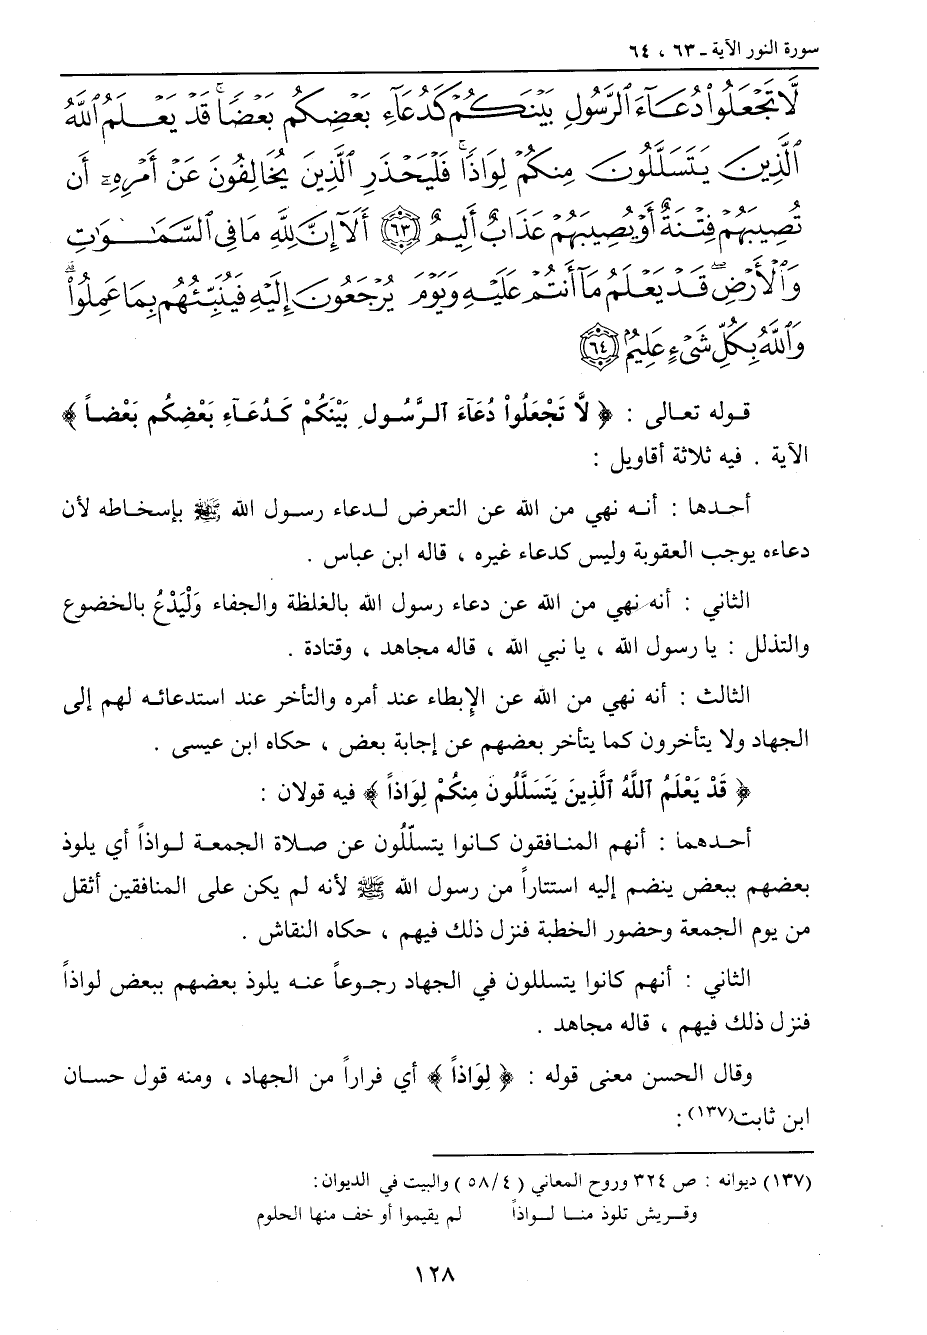 سورة النور الآية ـ ٦٣ ، ٦٤
لَّا تَجْعَلُوا۟ دُعَآءَ ٱلرَّسُولِ بَيْنَكُمْ كَدُعَآءِ بَعْضِكُم بَعْضًا ۚ قَدْ يَعْلَمُ ٱللَّهُ
ٱلَّذِينَ يَتَسَلَّلُونَ مِنكُمْ لِوَاذًا ۚ فَلْيَحْذَرِ ٱلَّذِينَ يُخَالِفُونَ عَنْ أَمْرِهِۦٓ أَن
تُصِيبَهُمْ فِتْنَةٌ أَوْ يُصِيبَهُمْ عَذَابٌ أَلِيمٌ ﴿٦٣﴾ أَلَآ إِنَّ لِلَّهِ مَا فِى ٱلسَّمَٰوَٰتِ
وَٱلْأَرْضِ ۖ قَدْ يَعْلَمُ مَآ أَنتُمْ عَلَيْهِ وَيَوْمَ يُرْجَعُونَ إِلَيْهِ فَيُنَبِّئُهُم بِمَا عَمِلُوا۟ ۗ
وَٱللَّهُ بِكُلِّ شَىْءٍ عَلِيمٌۢ ﴿٦٤﴾
قوله تعالى : ﴿ لَّا تَجْعَلُواْ دُعَآءَ ٱلرَّسُولِ بَيْنَكُمْ كَدُعَآءِ بَعْضِكُم بَعْضاً ﴾
الآية . فيه ثلاثة أقاويل :
أحدها : أنه نهي من الله عن التعرض لدعاء رسول الله ﷺ بإسخاطه لأن
دعاءه يوجب العقوبة وليس كدعاء غيره ، قاله ابن عباس .
الثاني : أنه نهي من الله عن دعاء رسول الله بالغلظة والجفاء وَلْيَدْعُ بالخضوع
والتذلل : يا رسول الله ، يا نبي الله ، قاله مجاهد ، وقتادة .
الثالث : أنه نهي من الله عن الإبطاء عند أمره والتأخر عند استدعائه لهم إلى
الجهاد ولا يتأخرون كما يتأخر بعضهم عن إجابة بعض ، حكاه ابن عيسى .
﴿ قَدْ يَعْلَمُ ٱللَّهُ ٱلَّذِينَ يَتَسَلَّلُونَ مِنكُمْ لِوَاذاً ﴾ فيه قولان :
أحدهما : أنهم المنافقون كانوا يتسلّلُون عن صلاة الجمعة لواذاً أي يلوذ
بعضهم ببعض ينضم إليه استتاراً من رسول الله ﷺ لأنه لم يكن على المنافقين أثقل
من يوم الجمعة وحضور الخطبة فنزل ذلك فيهم ، حكاه النقاش .
الثاني : أنهم كانوا يتسللون في الجهاد رجوعاً عنه يلوذ بعضهم ببعض لواذاً
فنزل ذلك فيهم ، قاله مجاهد .
وقال الحسن معنى قوله : ﴿ لِوَاذاً ﴾ أي فراراً من الجهاد ، ومنه قول حسان
ابن ثابت(١٣٧) :
(١٣٧) ديوانه : ص ٣٢٤ وروح المعاني ( ٥٨/٤ ) والبيت في الديوان :
وقريش تلوذ منا لواذاً لم يقيموا أو خف منها الحلوم
١٢٨